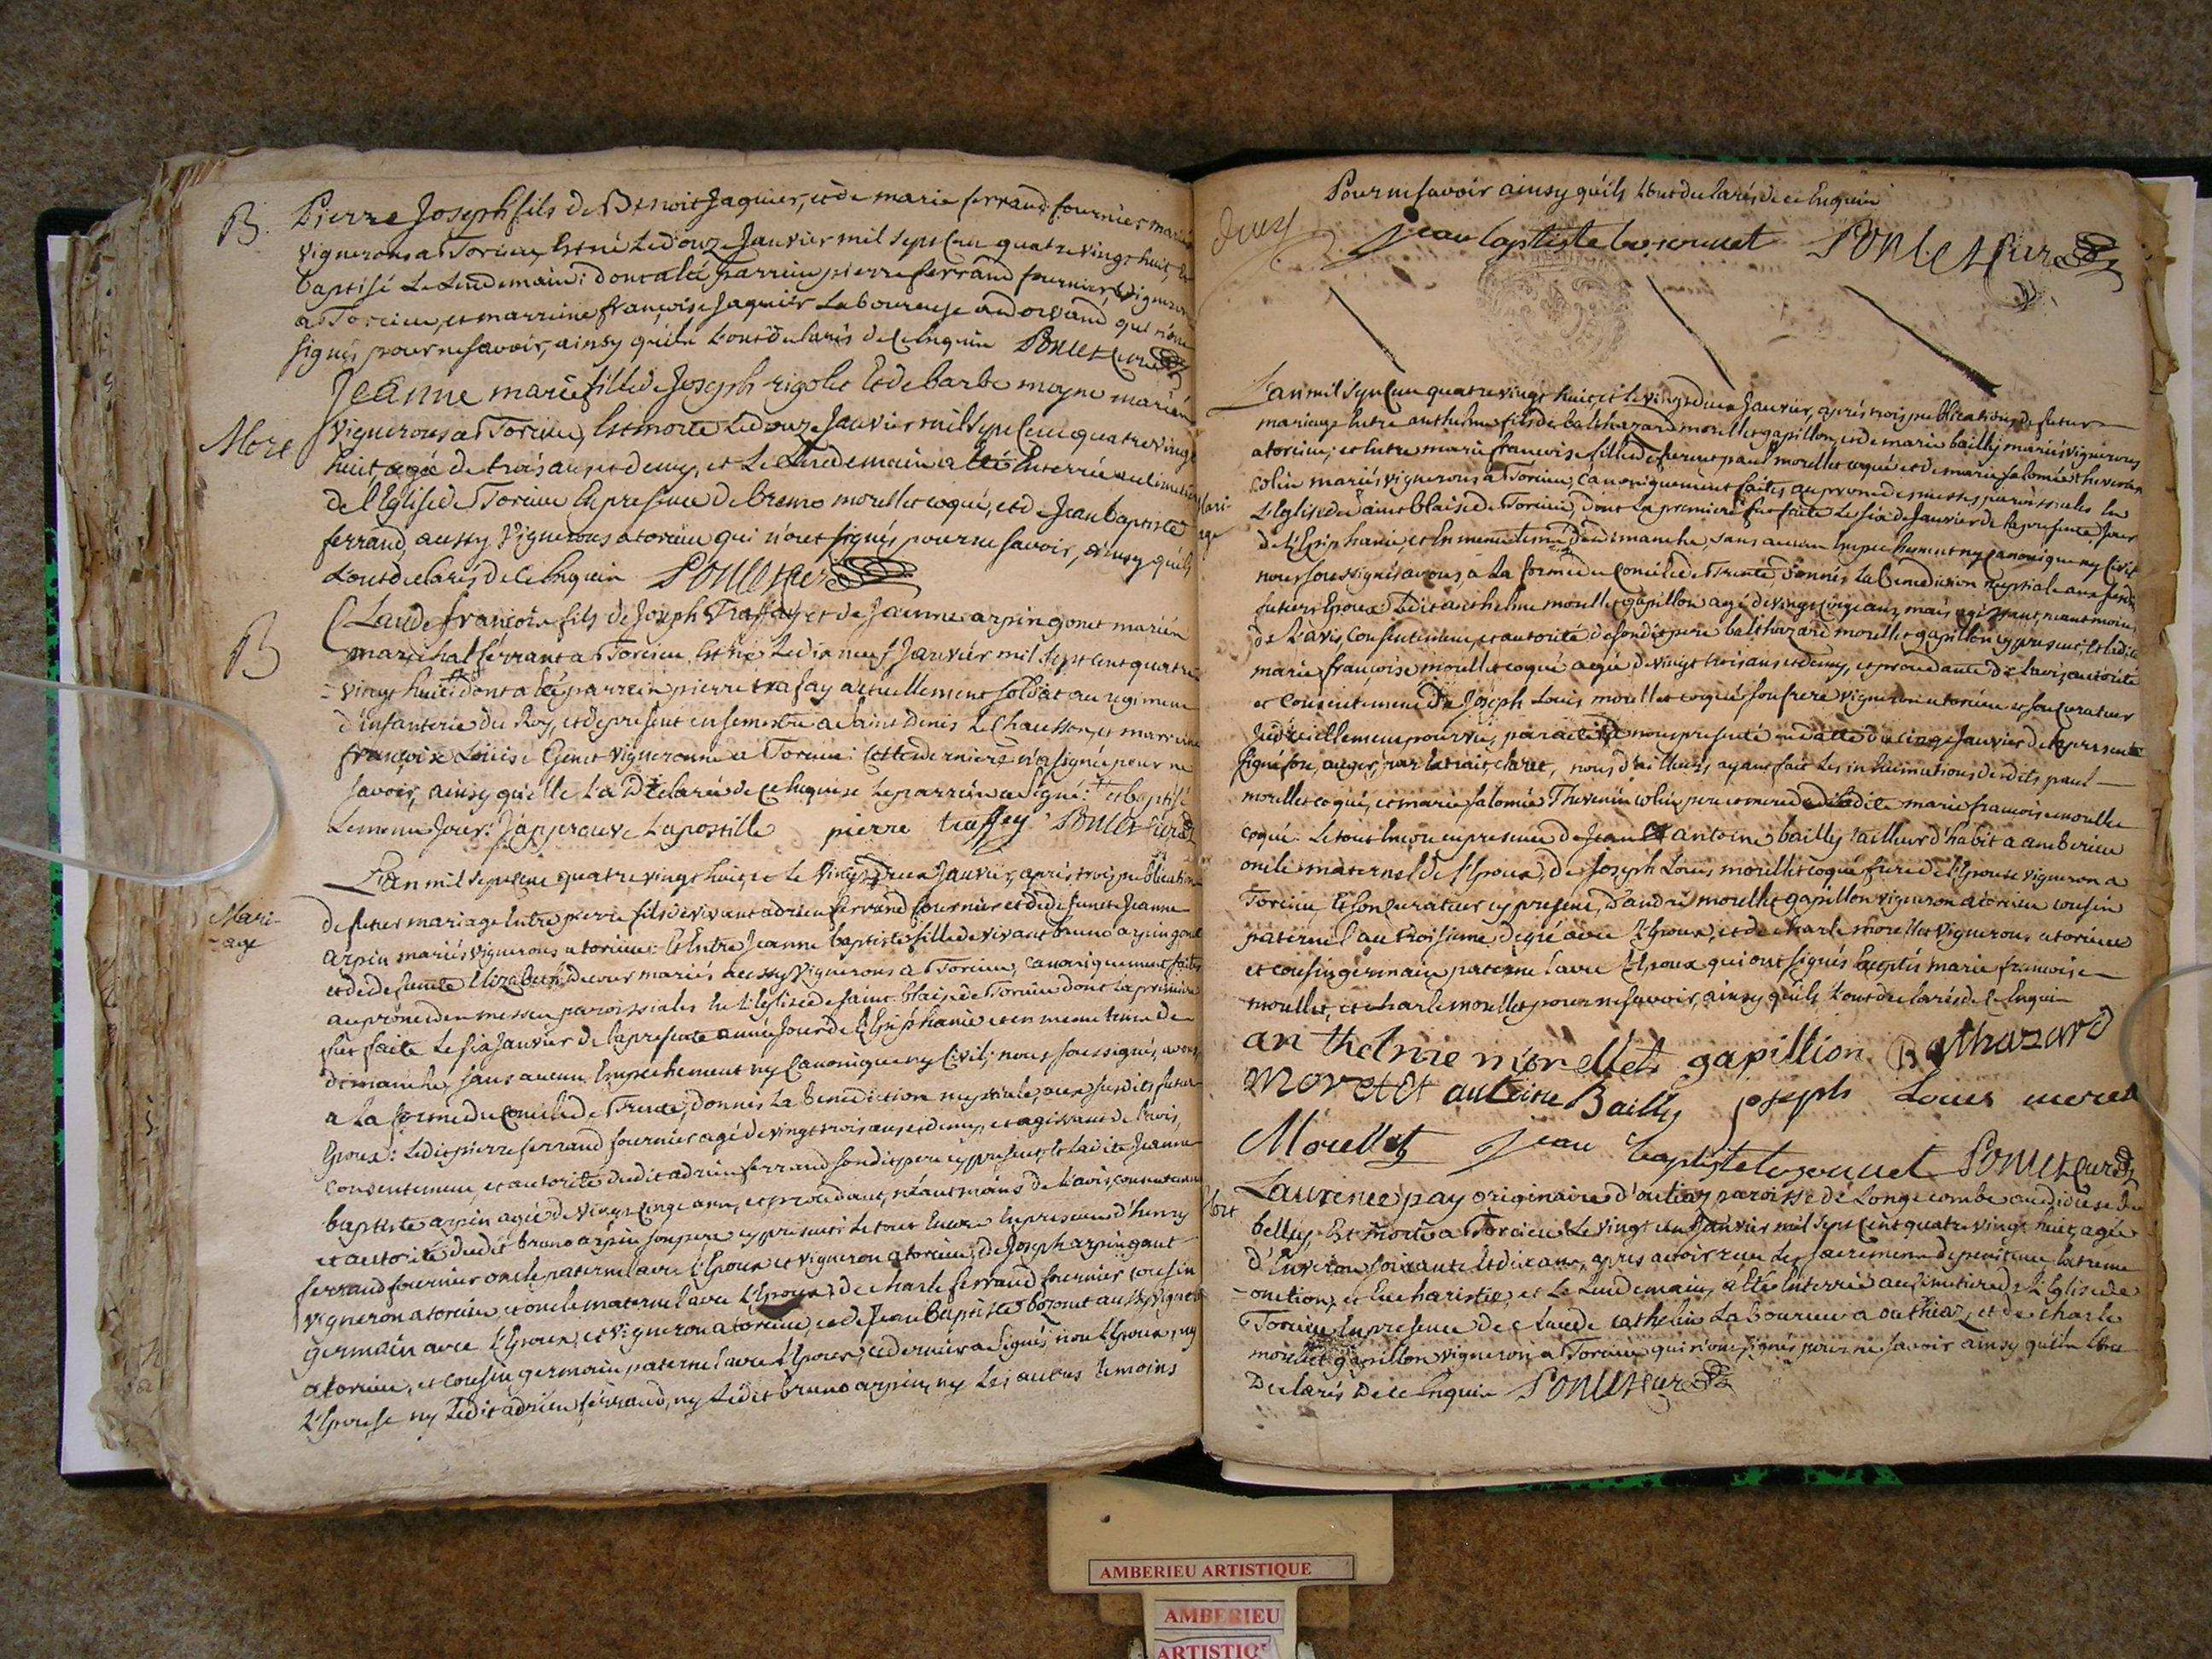 B. Pierre Joseph fils de Benoit Jaquier, et de marie ferrand fournier mariés
vignerons a Torcieu, Est né Le douze Janvier mil sept Cen quatre vingt huit, et
baptisé Le Lendemain: dont a été parrain pierre ferrand fournier, vigneron
a Torcieu, et marraine françoise Jaquier Laboureuse a dorvand qui n'ont
signés pour ne savoir, ainsy qu'ils L'ont déclarés de ce Enquis Poncet Curé
Mort Jeanne marie fille de Joseph rigolet Et de barbe moyne mariés
vignerons a Torcieu, Est morte Le douze Janvier mil sept Cen quatre vingt
huit, agée de trois ans et demy, et Le Lendemain a été Enterrée au cimetiere
de l'Eglise de Torcieu En presence de bruno morellet coqué, et de Jean baptiste
ferrand, aussy vignerons a torcieu qui n'ont signés pour ne savoir, ainsy qu'ils
L'ont declarés de ce Enquis Poncet Curé
B Claude françois fils de Joseph Traffay et de Jeanne arpin gonet mariés
marechal ferrant a Torcieu Est né Le dix neuf Janvier mil sept cent quatre
-vingt huit: dont a été parrain pierre trafay actuellement soldat au regiment
d'infanterie du Roy, et de present en semestre a saint Denis Le Chausson, et marraine
françoise Louise Genet vigneronne a Torcieu: Cette derniere n'a signée pour ne
savoir, ainsy qu'elle L'a Déclarée de ce Enquise Le parrain a signé: et baptisé
Le meme Jour: J'approuve L'apostille pierre traffey Poncet Curé
Mari-
-age
L'an mil sept cent quatre vingt huit, et le vingt deux Janvier, après trois publications
de futur mariage Entre pierre fils de vivant adrien ferrand fournier et de defunte Jeanne
arpin mariés vignerons a torcieu: Et Entre Jeanne baptiste fille de vivant bruno arpin gonet
et de defunte Elizabeth mariés aussy vignerons a Torcieu, canoniquement faites
au prone des messes paroissiales En L'Eglise de saint blaise de Torcieu dont La premiere
fut faite Le six Janvier de La presente année Jour de L'Epiphanie et en meme tems de
dimanche, sans aucun Empechement ny Canonique ny Civil; nous soussigné, avons
a La forme du Concile de Trente, donnés La benediction nuptiale, aux susdits futurs
Epoux: Ledit pierre ferrand fournier agé de vingt trois ans et demy, et agissant de L'avis,
consentement, et autorité dudit adrien ferrand son dit pere cy present, Et Ladite Jeanne
baptiste arpin agée de vingt Cinq ans, et procedant, néantmoins de L'avis, consentement
et autorité dudit bruno arpin son pere cy present: Le tout Encore En presence d'henry
ferrand fournier oncle paternel avec L'Epoux et vigneron a torcieu, de Joseph arpin gonet
vigneron a torcieu, et oncle maternel avec L'Epoux, de charle ferrand fournier cousin
germain avec L'Epoux, et vigneron a torcieu, et de Jean baptiste bozonet aussy vigneron
a torcieu, et cousin germain paternel avec L'Epoux, ce dernier a signé, non L'Epoux, ny
L'Epouse ny Ledit adrien ferrand, ny Ledit bruno arpin, ny Les autres temoins
Pour ne savoir ainsy qu'ils L'ont declarés de ce Enquis
Jean baptiste bozonnet Poncet Curé
Mari-
age
L'an mil sept Cen quatre vingt huit, et Le vingt deux Janvier, après trois publications de futur
mariage Entre anthelme fils de balthazard morellet gapillon, et de marie bailly mariés vignerons
a torcieu; et Entre marie françoise fille de defunt paul morellet coqué et de marie salomée thevenin
colin mariés vignerons a Torcieu, canoniquement faites au prone des messes paroissiales En
L'Eglise de saint blaise de Torcieu, dont La premiere fut faite Le six de Janvier de La presente, Jour
de L'Epiphanie, et En meme tems de dimanche, sans aucun Empechement ny canonique ny Civil
nous soussignés avons, a La forme du Concile de Trente, donnés La benediction nuptiale aux susdits
futurs Epoux Ledit anthelme morellet gapillon agé de vingt cinq ans, mais agissant, neantmoins
de L'avis Consentement, et autorité de son dit pere balthazard morellet gapillon cy present, Et Ladite
marie françoise morellet coqué agée de vingt trois ans et demy, et procedante de L'avis, autorité
et Consentement de Joseph Louis morellet coqué son frere vigneron a torcieu et son curateur
Judiciellement pourvu, par acte a nous presenté en datte du cinq Janvier de La presente
signé son, auger, par Extrait claret, nous d'ailleurs ayant fait Les intimations desdits paul
morellet coqué, et marie salomée Thevenin colin pere et mere de Ladite marie françoise morellet
coqué. Le tout Encore en presence de Jean antoine bailly tailleur d'habit a amberieu
oncle maternel de L'Epoux, de Joseph Louis morellet coqué frere de L'Epouse vigneron a
Torcieu Et son curateur cy present, d'andré morellet gapillon vigneron a torcieu cousin
paternel au troisieme degré avec L'Epoux, et de charle morellet vignerons a torcieu
et cousin germain paternel avec L'Epoux qui ont signés Exceptés marie françoise
morellet, et charle morellet pour ne savoir, ainsy qu'ils L'ont declarés de ce Enquis
anthelme morellet gapillion Balthazard
Morellet antoine Bailly joseph Louis morel
Morellet Jean baptiste bozonnet Poncet Curé
Mort Laurence pay originaire d'outriaz paroisse de Longecombe au diocese de
belley, Est morte a Torcieu Le vingt un Janvier mil sept Cent quatre vingt huit, agée
d'Environ soixante Et dix ans, apres avoir reçu Les sacremens de penitence Extreme
-onction, et Eucharistie, et Le Lendemain, a été Enterrée au cimetiere de L'Eglise de
Torcieu En presence de Claude cathelin Laboureur a outriaz, et de charle
morellet gapillon vigneron a Torcieu qui n'ont signés pour ne savoir ainsy qu'ils L'ont
Declarés De ce Enquis Poncet Curé
AMBERIEU ARTISTIQUE
AMBERIEU
ARTISTIQ